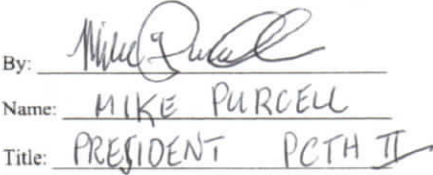 By: Mike Purcell
Name: MIKE PURCELL
Title: PRESIDENT PCTH II